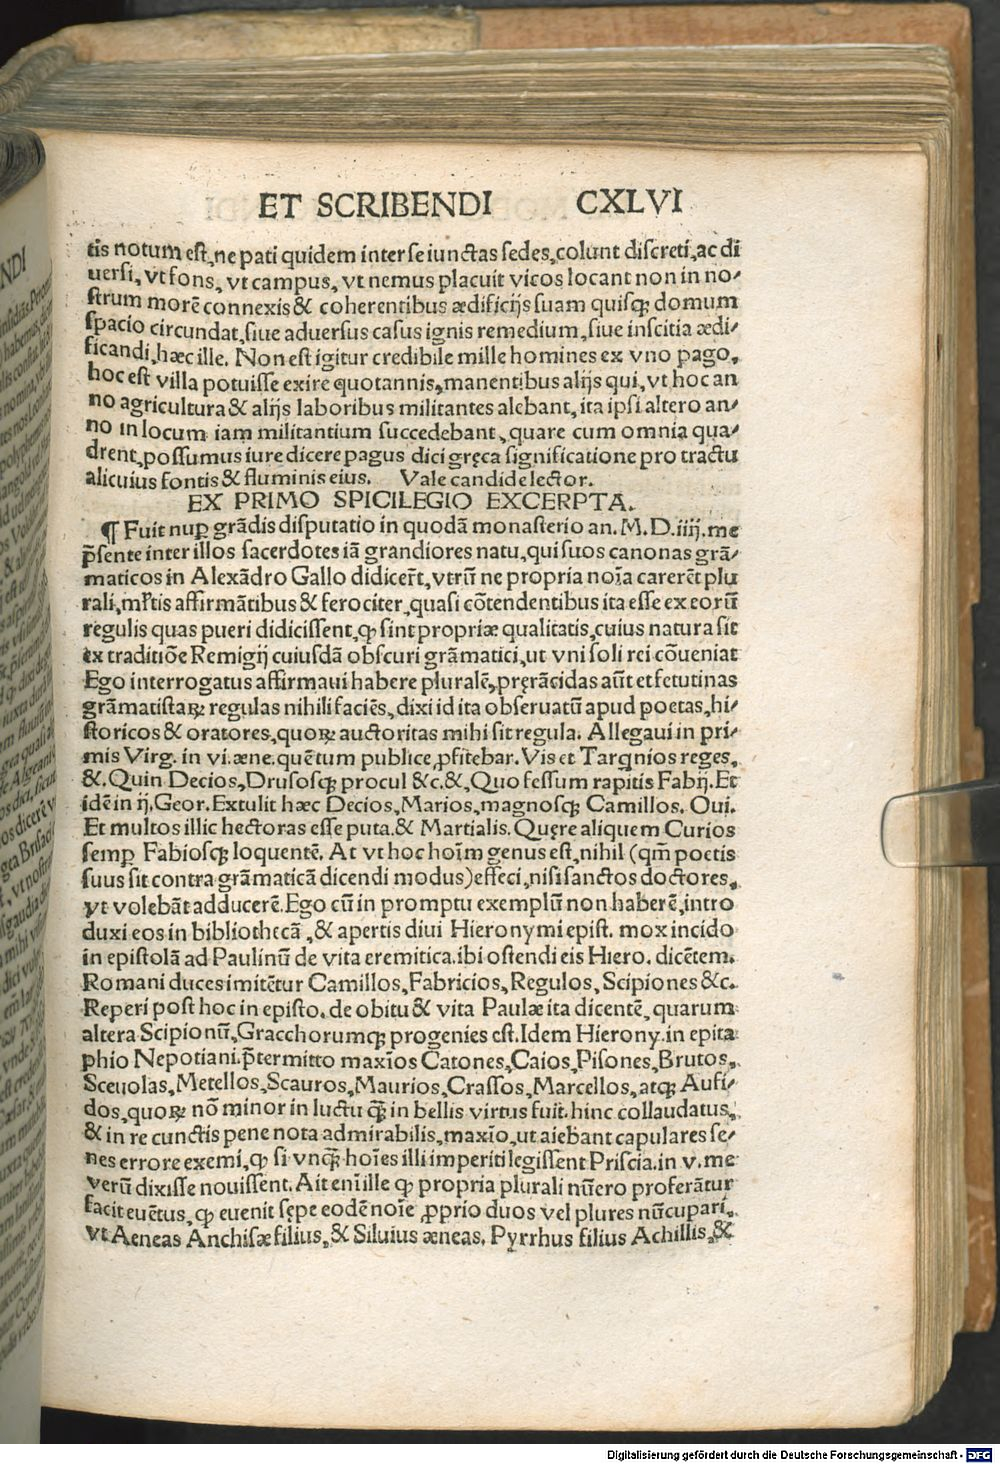 ET SCRIBENDI CXLVI
tis notum est, ne pati quidem inter se iunctas sedes, colunt discreti, ac di
uersi, vt fons, vt campus, vt nemus placuit vicos locant non in no-
strum morē connexis & coherentibus ædificijs suam quisqȝ domum
spacio circundat, siue aduersus casus ignis remedium, siue inscitia ædi-
ficandi, hæc ille. Non est igitur credibile mille homines ex vno pago,
hoc est villa potuisse exire quotannis, manentibus alijs qui, vt hoc an
no agricultura & alijs laboribus militantes alebant, ita ipsi altero an-
no in locum iam militantium succedebant, quare cum omnia qua-
drent, possumus iure dicere pagus dici gręca significatione pro tractu
alicuius fontis & fluminis eius. Vale candide lector.
EX PRIMO SPICILEGIO EXCERPTA.
¶ Fuit nuꝑ grādis disputatio in quodā monasterio an. M.D.iiij. me
p̄sente inter illos sacerdotes iā grandiores natu, qui suos canonas grā-
maticos in Alexādro Gallo didicer̄t, vtrū ne propria noīa carerēt plu
rali, ml̄tis affirmātibus & ferociter, quasi cōtendentibus ita esse ex eorū
regulis quas pueri didicissent, ꝙ sint propriæ qualitatis, cuius natura sit
ex traditiōe Remigij cuiusdā obscuri grāmatici, ut vni soli rei cōueniat
Ego interrogatus affirmaui habere pluralē, pręrācidas aūt et fetutinas
grāmatistaꝝ regulas nihili faciēs, dixi id ita obseruatū apud poetas, hi-
storicos & oratores, quoꝝ auctoritas mihi sit regula. Allegaui in pri-
mis Virg. in vi. æne. quē tum publice ꝓfitebar. Vis et Tarq̇nios reges,
&. Quin Decios, Drusosqȝ procul &c. &, Quo fessum rapitis Fabij. Et
idē in ij. Geor. Extulit hæc Decios, Marios, magnosqȝ Camillos. Oui.
Et multos illic hectoras esse puta. & Martialis. Quęre aliquem Curios
semꝑ Fabiosqȝ loquentē. At vt hoc hoīm genus est, nihil (qm̄ poetis
suus sit contra grāmaticā dicendi modus) effeci, nisi sanctos doctores,
vt volebāt adducerē. Ego cū in promptu exemplū non haberē, intro
duxi eos in bibliothecā, & apertis diui Hieronymi epist. mox incido
in epistolā ad Paulinū de vita eremitica. ibi ostendi eis Hiero. dicētem.
Romani duces imitētur Camillos, Fabricios, Regulos, Scipiones &c.
Reperi post hoc in episto. de obitu & vita Paulæ ita dicentē, quarum
altera Scipionū, Gracchorumqȝ progenies est. Idem Hierony. in epita
phio Nepotiani. p̄termitto maxīos Catones, Caios, Pisones, Brutos,
Sceuolas, Metellos, Scauros, Maurios, Crassos, Marcellos, atqȝ Aufi-
dos, quoꝝ nō minor in luctu q̄ȝ in bellis virtus fuit. hinc collaudatus,
& in re cunctis pene nota admirabilis, maxīo, ut aiebant capulares se-
nes errore exemi, ꝙ si vnq̄ȝ hoīes illi imperiti legissent Priscia. in v. me
verū dixisse nouissent. Ait enīille ꝙ propria plurali nūero proferātur
facit euētus, ꝙ euenit sępe eodē noīe ꝓprio duos vel plures nūcupari,
vt Aeneas Anchisæ filius, & Siluius æneas. Pyrrhus filius Achillis, &
Digitalisierung gefördert durch die Deutsche Forschungsgemeinschaft - DFG